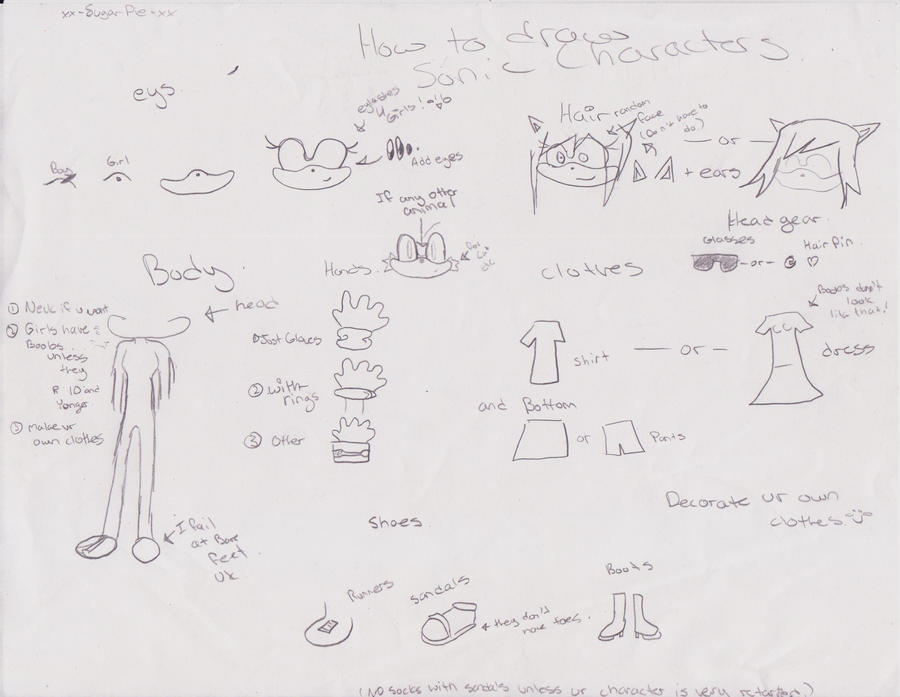 xx-Sugar-Pie-xx
How to draw
Sonic Characters.
eys
eylashes
4 Girls!
Boy
Girl
Add eyes
If any other
animal
Hair
random
face
(Don't have to
do)
or
+ ears
Head gear.
Glasses
or
Hair Pin.
Body.
① Neck if u want
② Girls have
Boobs
unless
they
R 10 and
Yonger
③ make ur
own clothes
head
I fail
at Bare
feet
Uk
Hands.
① Just Gloves
② with
rings
③ Other
clothes
shirt
or
Boobs don't
look
like that!
dress
and Bottom
or
Pants
Decorate ur own
clothes.
Shoes.
Runners
Sandals
they don't
have toes.
Boots
(No socks with sandals unless ur character is very